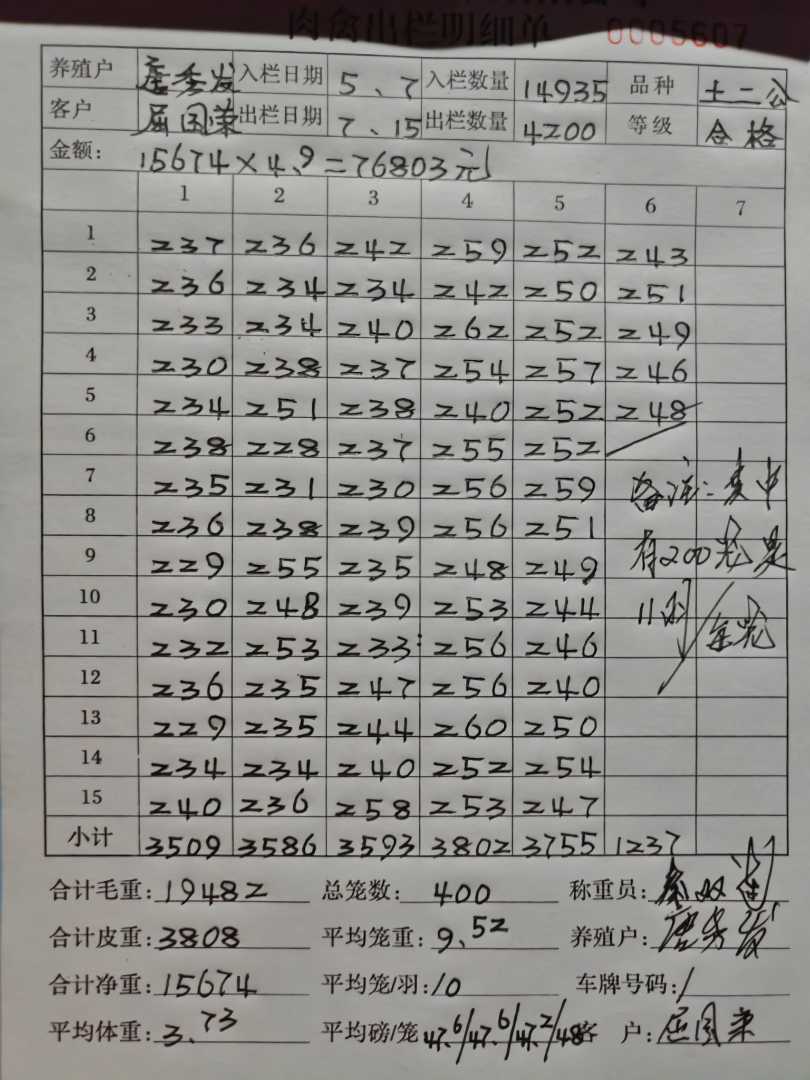 肉禽出栏明细单 0005607
养殖户 唐秀发 入栏日期 5、7 入栏数量 14935 品种 土二公
客户 屈国荣 出栏日期 7、15 出栏数量 4200 等级 合格
金额: 15674×4.9=76803元
1 2 3 4 5 6 7
1 237 236 242 259 252 243
2 236 234 234 242 250 251
3 233 234 240 262 252 249
4 230 238 237 254 257 246
5 234 251 238 240 252 248
6 238 228 237 255 252
7 235 231 230 256 259 备注:其中
8 236 238 239 256 251 有200笼是
9 229 255 235 248 249
10 230 248 239 253 244 11羽/笼
11 232 253 233 256 246
12 236 235 247 256 240
13 229 235 244 260 250
14 234 234 240 252 254
15 240 236 258 253 247
小计 3509 3586 3593 3802 3755 1237
合计毛重: 19482 总笼数: 400 称重员:
合计皮重: 3808 平均笼重: 9.52 养殖户: 唐秀发
合计净重: 15674 平均笼/羽: 10 车牌号码: /
平均体重: 3.73 平均磅/笼 47.6/47.6/47.2/48 客户: 屈国荣